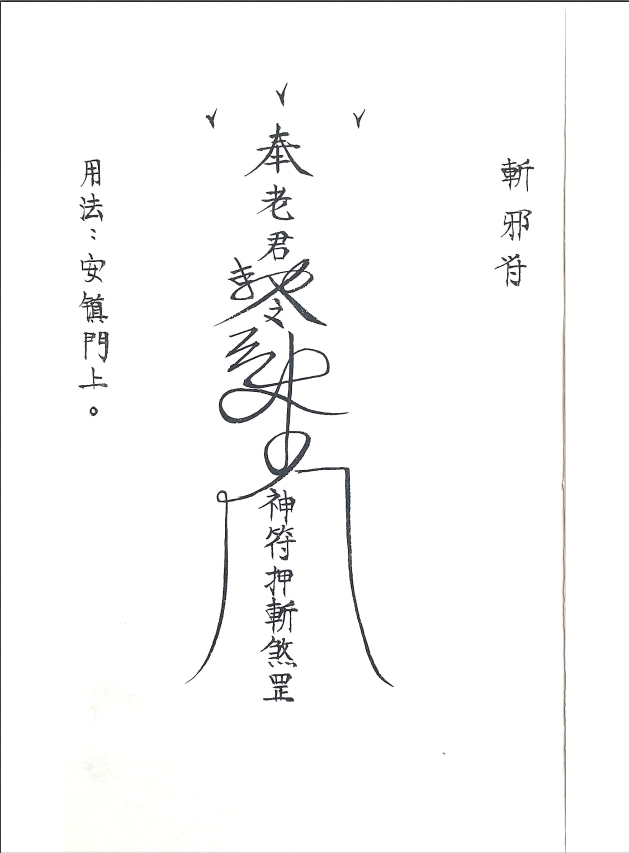 斬邪符
奉老君
神符押斬煞罡
用法：安鎮門上。